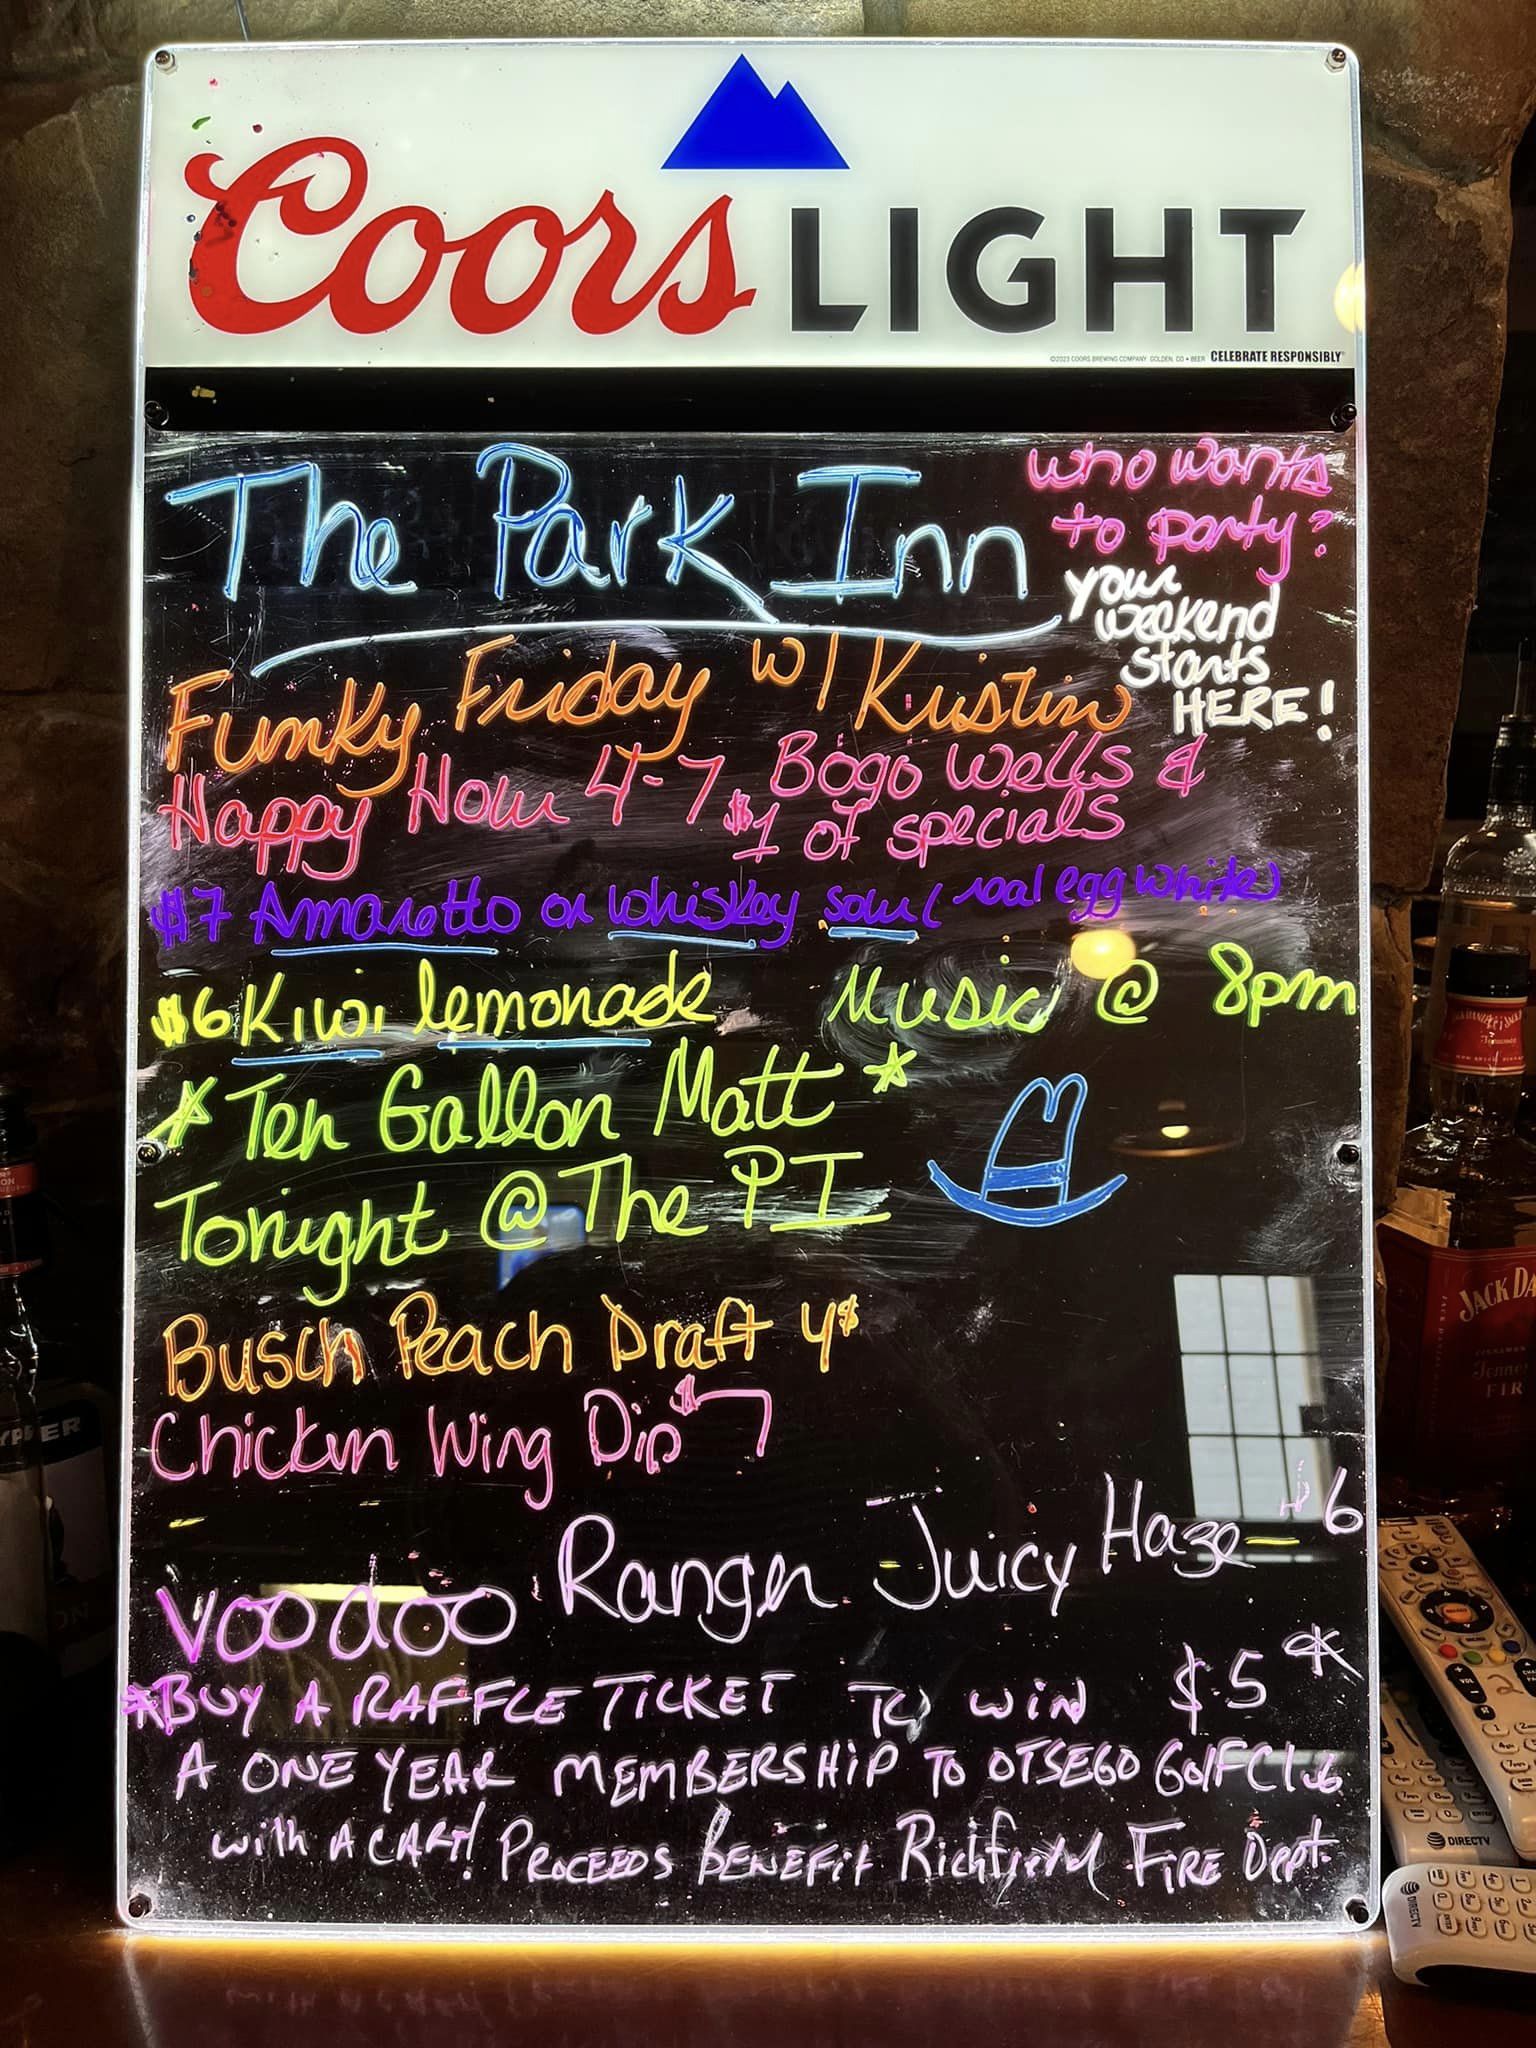 Coors LIGHT
©2023 COORS BREWING COMPANY GOLDEN, CO • BEER CELEBRATE RESPONSIBLY®
The Park Inn
who wants
to party?
your
weekend
starts
HERE!
Funky Friday w/ Kristin
Happy Hour 4-7 Bogo Wells &
$1 of specials
$7 Amaretto or whiskey sour (real egg white)
$6 Kiwi lemonade Music @ 8pm
*Ten Gallon Matt*
Tonight @ The PI
Busch Peach Draft 4$
Chicken Wing Dip $7
Voodoo Ranger Juicy Haze $6
*BUY A RAFFLE TICKET TO WIN $5*
A ONE YEAR MEMBERSHIP TO OTSEGO GOLF Club
with A CART! PROCEEDS BENEFIT Richfield FIRE Dept.
JACK DA
FIR
DIRECTV
DIRECTV